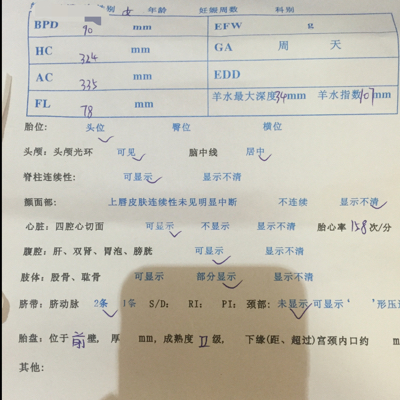 女 年龄 妊娠周数 科别
BPD 90 mm EFW g
HC 324 mm GA 周 天
AC 335 mm EDD
FL 78 mm 羊水最大深度34mm 羊水指数107mm
胎位: 头位 臀位 横位
头颅: 头颅光环 可见 脑中线 居中
脊柱连续性: 可显示 显示不清
颜面部: 上唇皮肤连续性未见明显中断 不连续 显示不清
心脏: 四腔心切面 可显示 不显示 显示不清 胎心率158次/分
腹腔: 肝、双肾、胃泡、膀胱 可显示 显示不清
肢体: 股骨、肱骨 可显示 部分显示 显示不清
脐带: 脐动脉 2条 1条 S/D: RI: PI: 颈部: 未显示 可显示“ ”形压
胎盘: 位于前壁, 厚 mm, 成熟度Ⅱ级, 下缘(距、超过)宫颈内口约 m
其他: